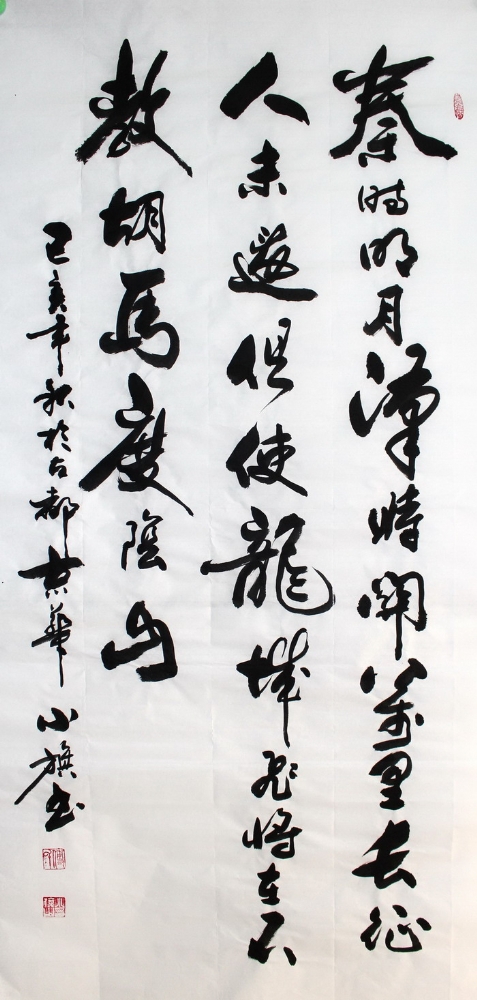 秦時明月漢時關萬里長征
人未還但使龍城飛將在不
教胡馬度陰山
己亥年秋於古都京華
小旗书